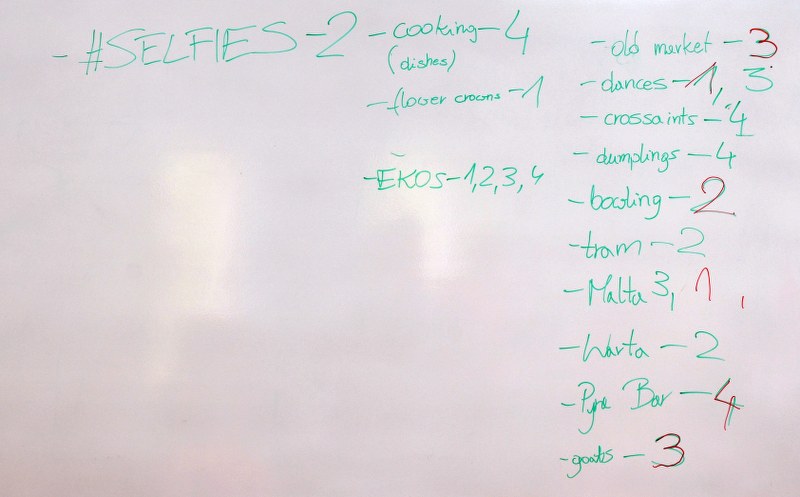 - #SELFIES - 2
- cooking - 4
(dishes)
- flower crowns - 1
- EKOS - 1,2,3,4
- old market - 3
- dances - 1, 3
- crossaints - 4
- dumplings - 4
- bowling - 2
- tram - 2
- Malta 3, 1,
- Warta - 2
- Pyra Bar - 4
- goats - 3